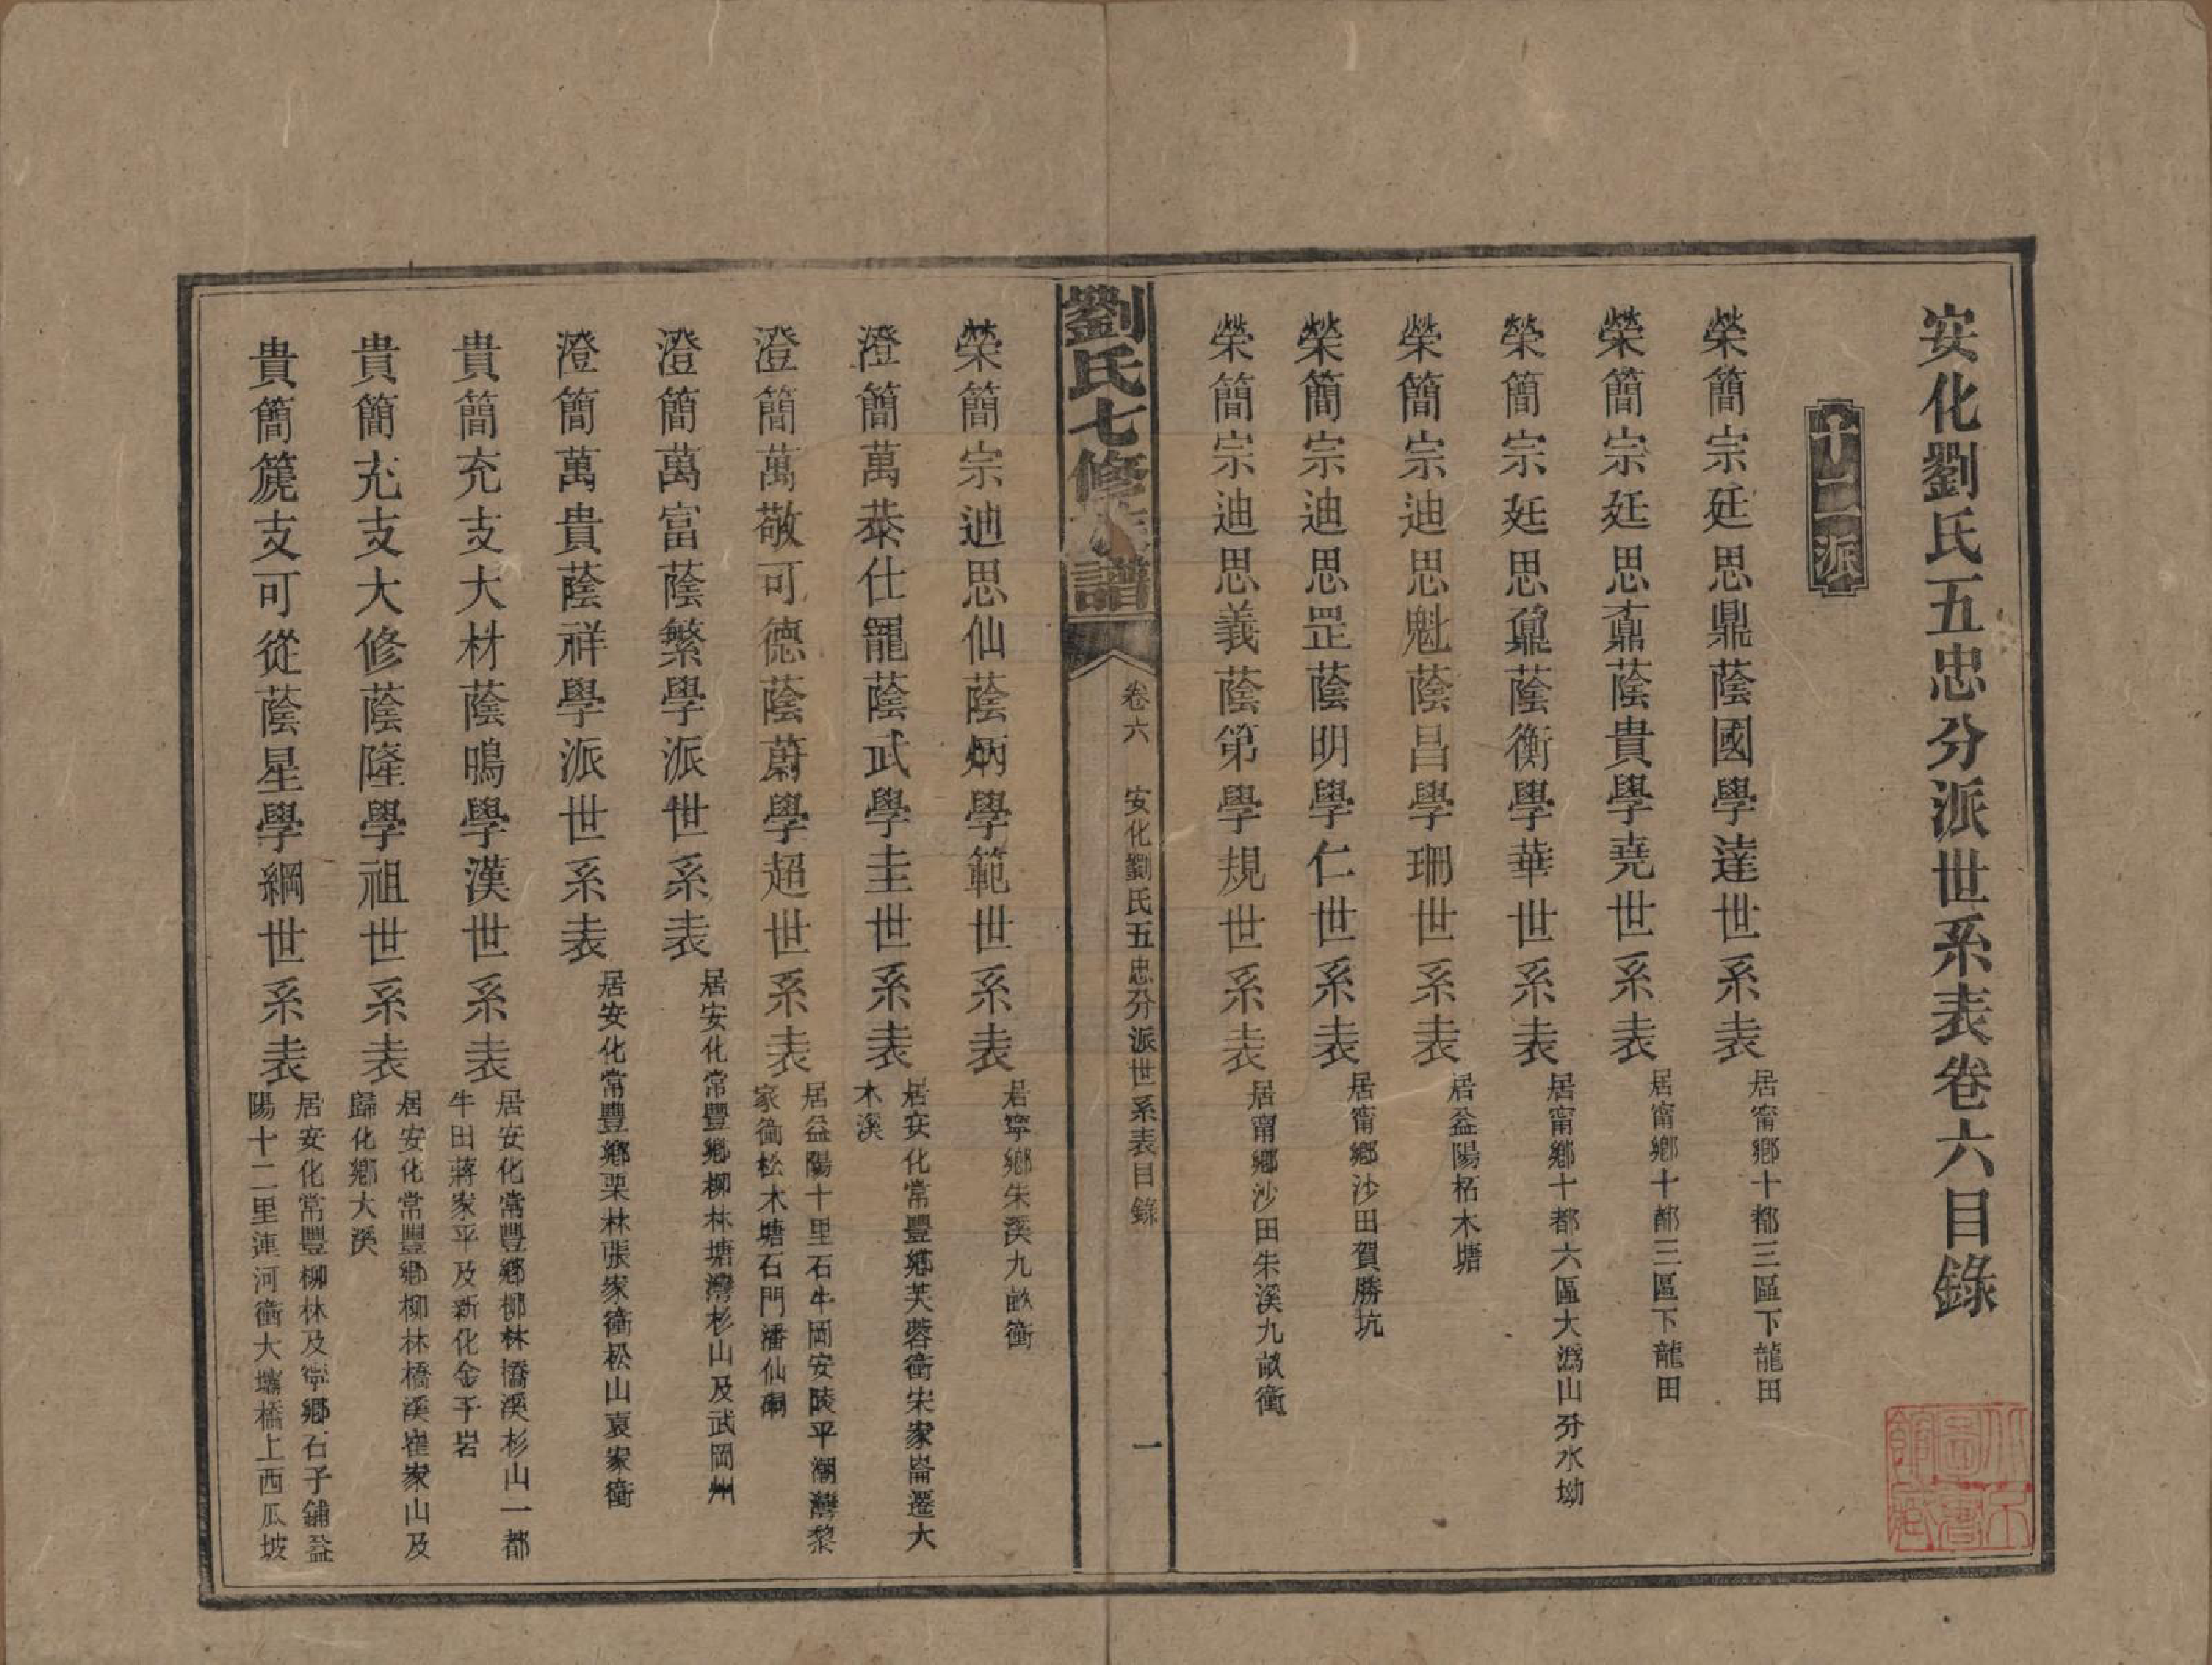 安化劉氏五忠分派世系表卷六目錄
十一派
榮簡宗廷思鼎蔭國學達世系表 居甯鄉十都三區下龍田
榮簡宗廷思鼒蔭貴學堯世系表 居甯鄉十都三區下龍田
榮簡宗廷思鼐蔭衡學華世系表 居甯鄉十都六區大溈山分水坳
榮簡宗迪思魁蔭昌學珊世系表 居益陽柘木塘
榮簡宗迪思罡蔭明學仁世系表 居甯鄉沙田賀勝坑
榮簡宗迪思義蔭第學規世系表 居甯鄉沙田朱溪九畝衝
劉氏七修族譜 卷六 安化劉氏五忠分派世系表目錄 一
榮簡宗迪思仙蔭炳學範世系表 居寧鄉朱溪九畝衝
澄簡萬恭仕寵蔭武學圭世系表 居安化常豐鄉芙蓉衝朱家崙遷大
木溪
澄簡萬敬可德蔭蔚學超世系表 居益陽十里石牛岡安陵平潮灣黎
家衝松木塘石門潘仙
澄簡萬富蔭繁學派世系表 居安化常豐鄉柳林塘灣杉山及武岡州
澄簡萬貴蔭祥學派世系表 居安化常豐鄉栗林張家衝松山袁家衝
貴簡充支大材蔭鳴學漢世系表 居安化常豐鄉柳林橋溪杉山一都
牛田蔣家平及新化金子岩
貴簡充支大修蔭隆學祖世系表 居安化常豐鄉柳林橋溪崔家山及
歸化鄉大溪
貴簡箎支可從蔭星學綱世系表 居安化常豐柳林及寧鄉石子鋪益
陽十二里連河衝大壩橋上西瓜坡